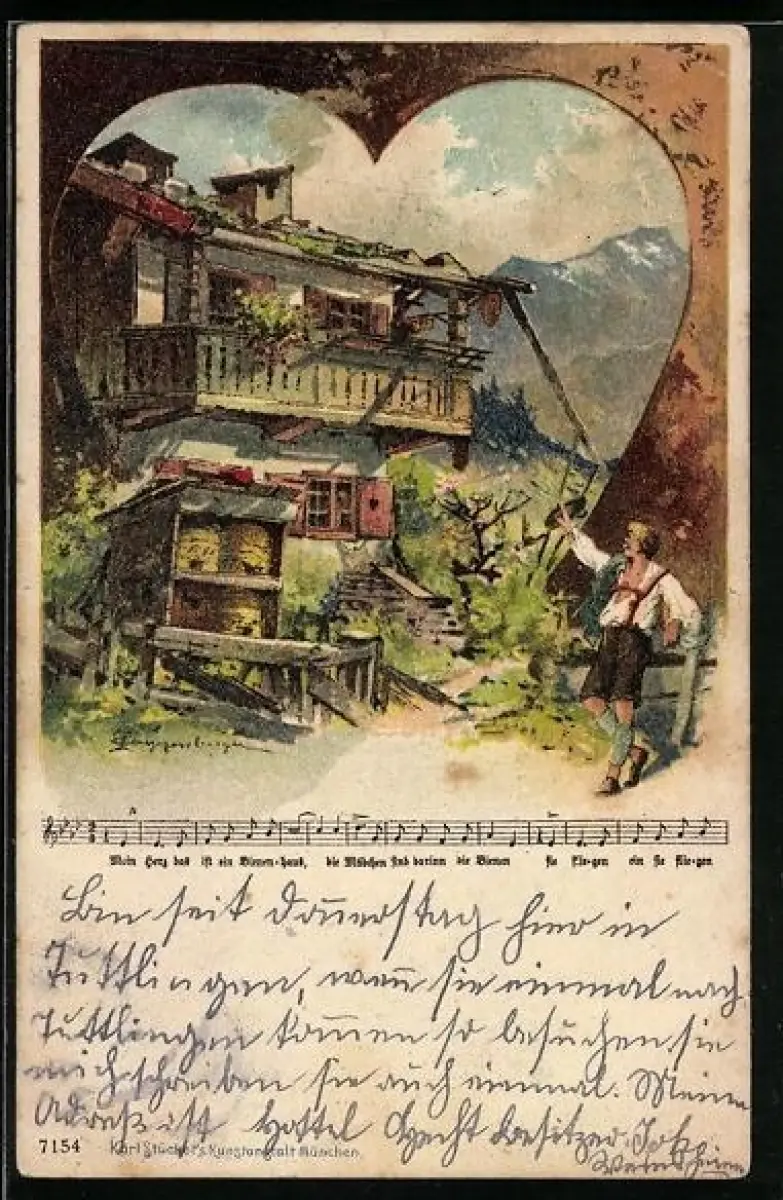 Mein Herz das ist ein Bienen-haus, die Mädchen sind darinn die Bienen sie flie-gen ein sie flie-gen
Bin seit Donnerstag hier in
Tuttlingen, wen̄ sie einmal nach
Tuttlingen kom̄en so besuchen sie
mich schreiben sie auch einmal. Meine
Adreß ist Hottel Hecht besitzer
7154 Karl Stücker's Kunstanstalt München.